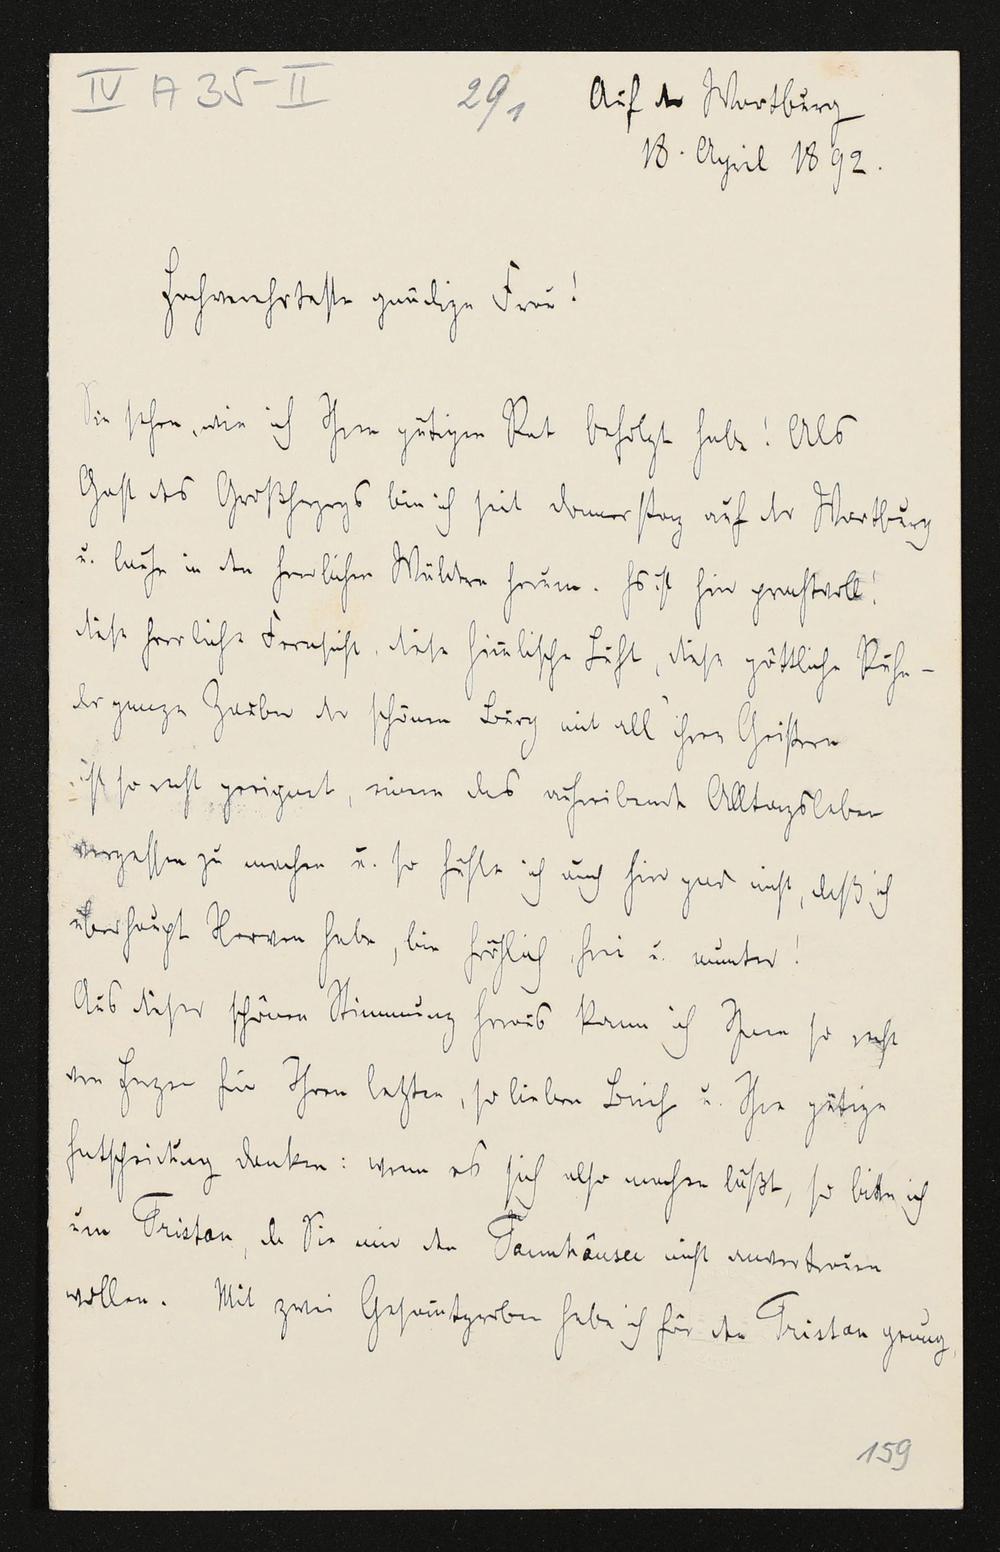 IV A 35-II
29,
Auf der Wartburg
18. April 1892.
Hochverehrteste gnädige Frau!
Sie sehen, wie ich Ihren gütigen Rat befolgt habe! Als
Gast des Großherzogs bin ich seit Donnerstag auf der Wartburg
u. laufe in den herrlichen Wäldern herum. Es ist hier prachtvoll!
diese herrliche Fernsicht, diese himlische Luft, diese göttliche Ruhe –
der ganze Zauber der schönen Burg mit all' ihren Geistern
ist so recht geeignet, einen das aufreibende Alltagsleben
vergessen zu machen u. so fühle ich auch hier gar nicht, daß ich
überhaupt Nerven habe, bin fröhlich, frei u. munter!
Aus dieser schönen Stimmung heraus kann ich Ihnen so recht
von Herzen für Ihren letzten, so lieben Brief u. Ihre gütige
Entscheidung danken: wenn es sich also machen läßt, so bitte ich
um Tristan, da Sie mir den Tannhäuser nicht anvertrauen
wollen. Mit zwei Gesamtproben habe ich für den Tristan genug,
159